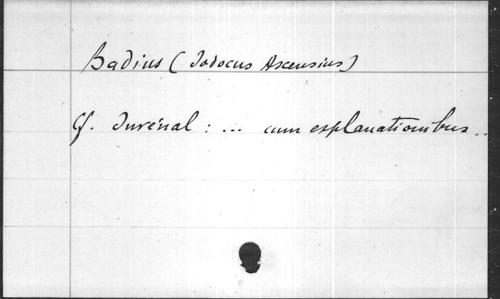 Badius (Jodocus Ascensius)
Cf. Juvénal : ... cum explanationibus...